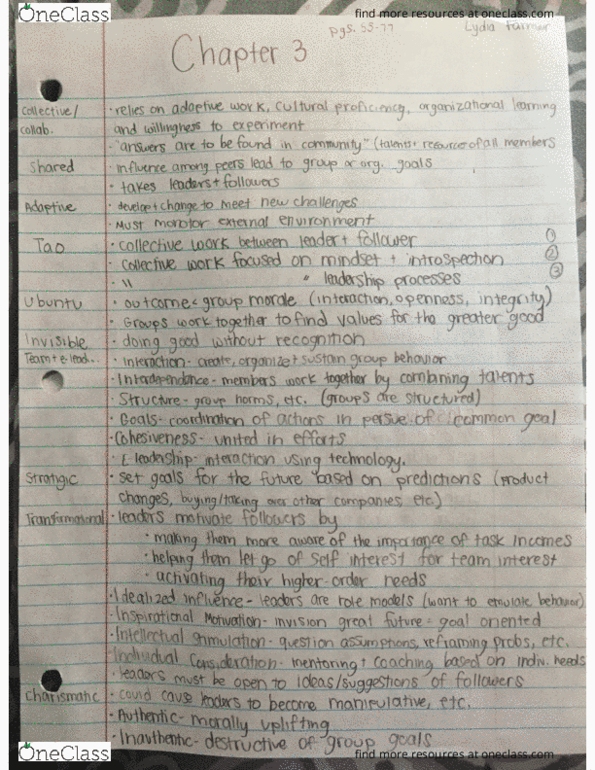 OneClass
find more resources at oneclass.com
pgs. 55-77
Lydia Farmer
Chapter 3
Collective/ collab.
· relies on adaptive work, cultural proficiency, organizational learning
and willingness to experiment
· "answers are to be found in community" (talents + resources of all members
Shared · influence among peers lead to group or org. goals
· takes leaders + followers
Adaptive · develop + change to meet new challenges
· Must monitor external environment
Tao · collective work between leader + follower ①
· collective work focused on mindset + introspection ②
· " " leadership processes ③
Ubuntu · outcome < group morale (interaction, openness, integrity)
· Groups work together to find values for the greater good
Invisible · doing good without recognition
Team + e-lead.. · Interaction - create, organize + sustain group behavior
· Intradependance - members work together by combining talents
· Structure - group norms, etc. (groups are structured)
· Goals - coordination of actions in persue of common goal
· Cohesiveness - united in efforts
· E-leadership - interaction using technology.
Strategic · set goals for the future based on predictions (product
changes, buying/taking over other companies etc)
Transformational · leaders motivate followers by
· making them more aware of the importance of task incomes
· helping them let go of self interest for team interest
· activating their higher-order needs
· Idealized influence - leaders are role models (want to emulate behavior)
· Inspirational Motivation - invision great future = goal oriented
· Intellectual stimulation - question assumptions, reframing probs, etc.
· Individual Consideration - mentoring + coaching based on indiv. needs
· leaders must be open to ideas/suggestions of followers
Charismatic · could cause leaders to become manipulative, etc.
· Authentic - morally uplifting
· Inauthentic - destructive of group goals
OneClass
find more resources at oneclass.com